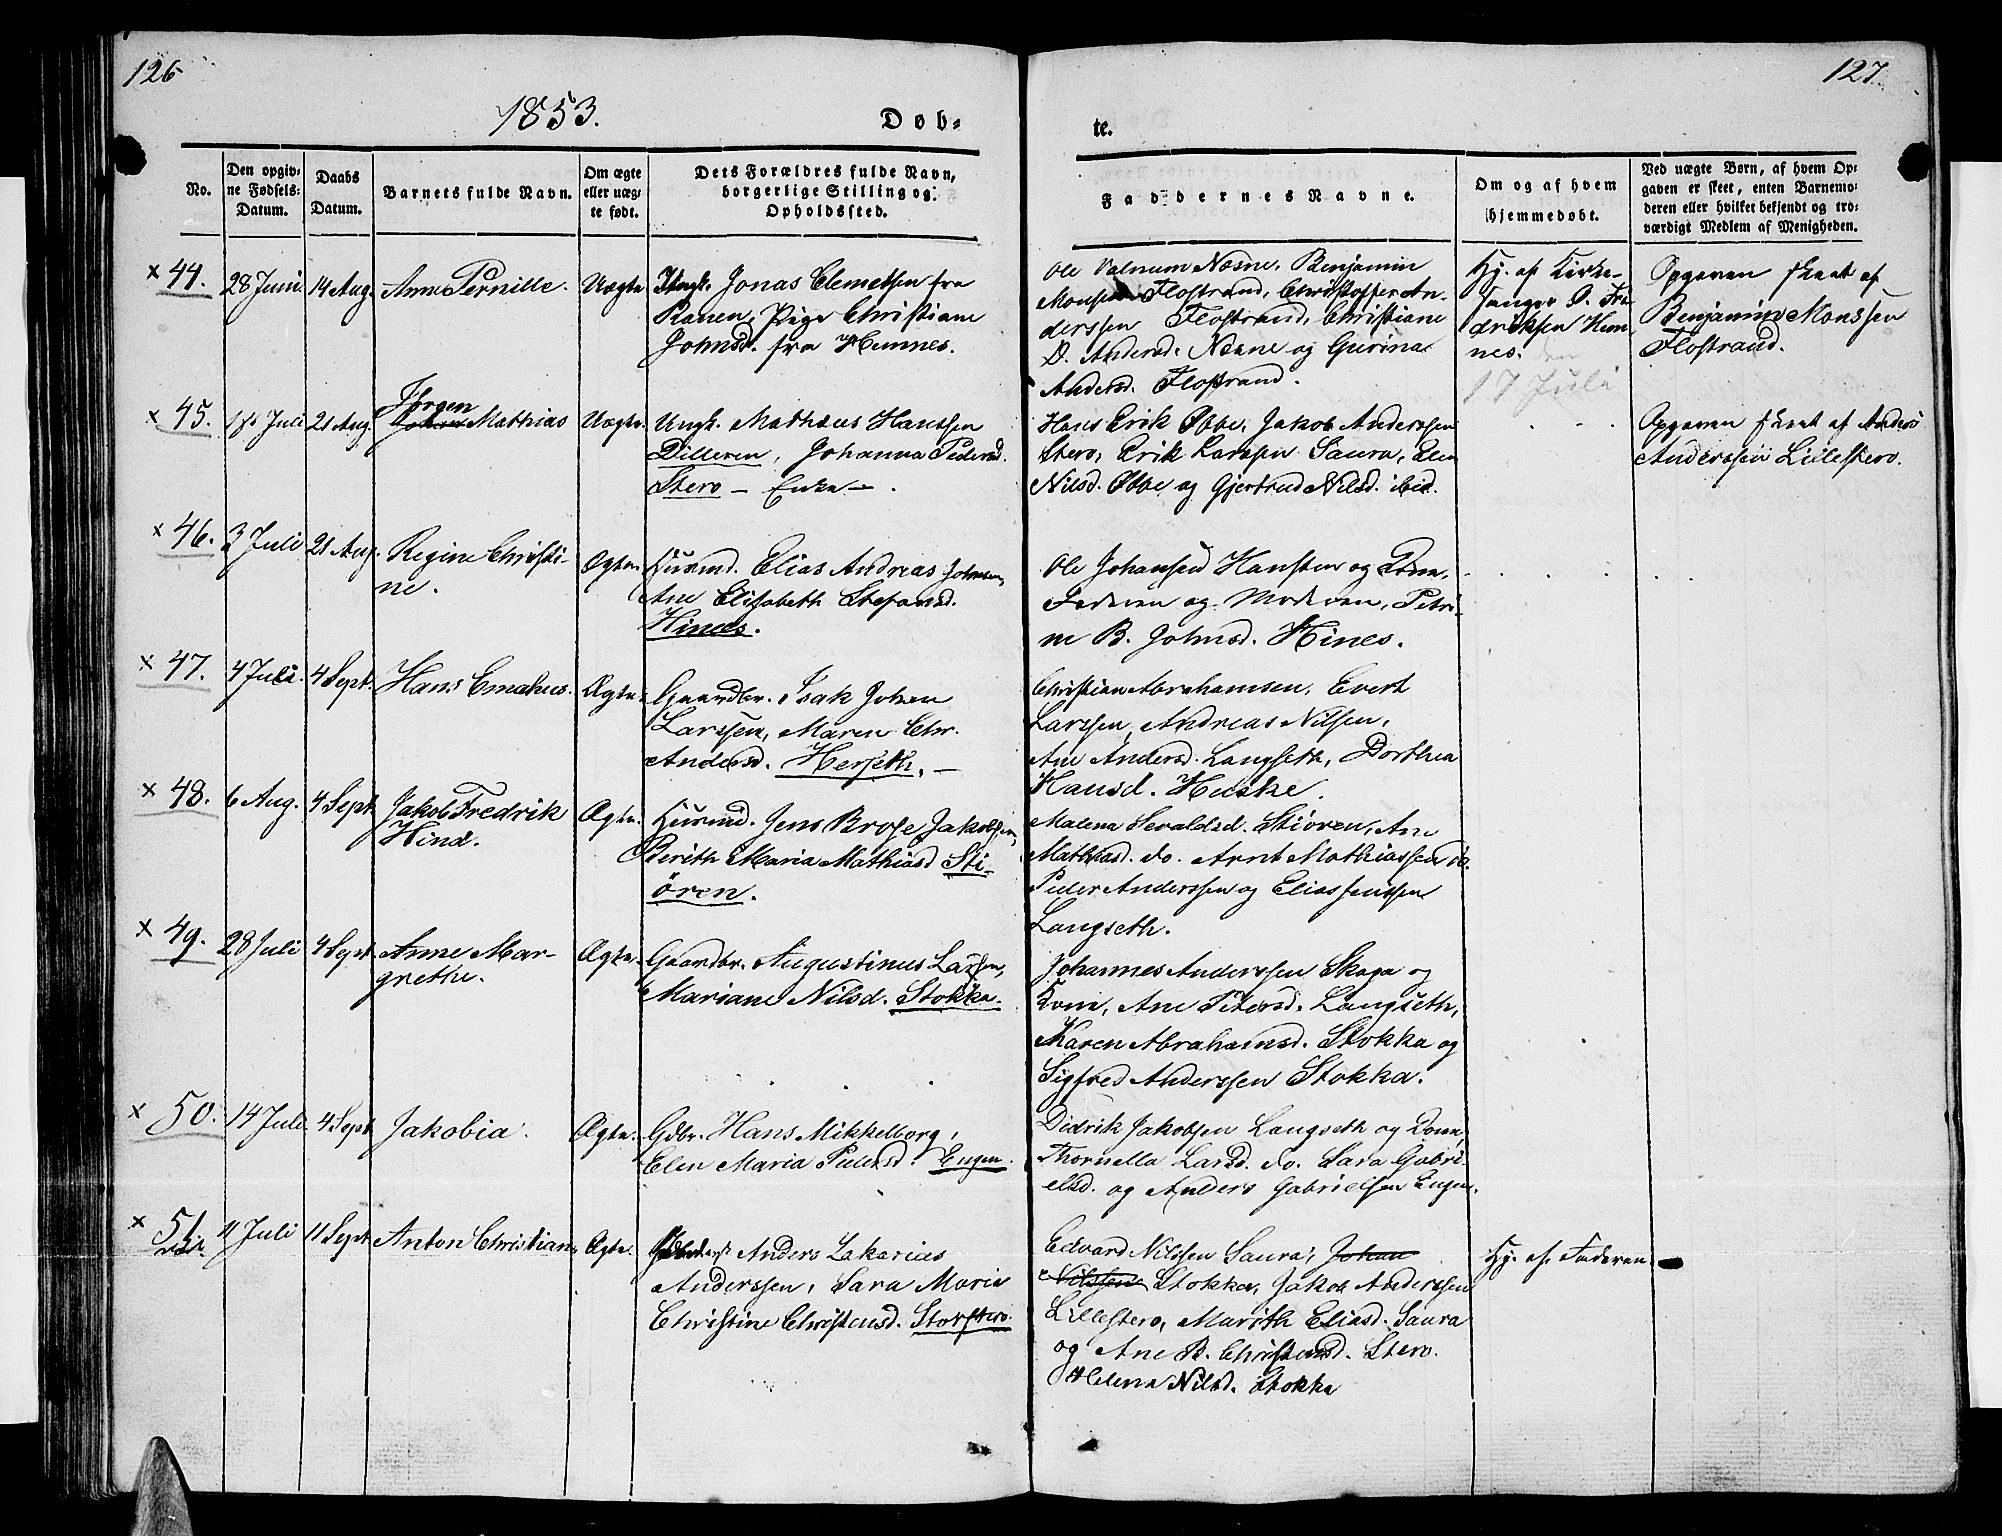 126
127.
1853.
Døb-
te.
No.
Den opgiv-
ne Fødsels-
Datum.
Daabs
Datum.
Barnets fulde Navn.
Om ægte
eller uæg-
te født.
Dets Forældres fulde Navn,
borgerlige Stilling og
Opholdssted.
Faddernes Navne.
Om og af hvem
hjemmedøbt.
Ved uægte Børn, af hvem Op-
gaven er skeet, enten Barnemo-
deren eller hvilket bekjendt og tro-
værdigt Medlem af Menigheden.
× 44. 28 Juni 14 Aug. Anne Pernille. Uægte
Ungk. Jonas Clemetsen fra
Ranen, Pige Christiane
Johnsd. fra Hemnes.
Ole Valnum Nesne, Benjamin
Monsen Flostrand, Christoffer An-
derssen Flostrand, Christiane
D. Andersd. Nesne og Gurina
Andersd. Flostrand.
Hj. af Kirke-
sanger O. Fre
driksen Hem
nes. den
17 Juli
Opgaven skeet af
Benjamin Monssen
Flostrand.
× 45. Juli 21 Aug. Jørgen
Johan Mathias Uægte
Ungk. Mathæus Hanssen
Dilleren, Johanna Pedersd.
Stero – Enke – .
Hans Erik Øbbe, Jakob Anderssen
Stero, Erik Larssen Saura, Elen
Nilsd. Øbbe og Gjertrud Nilsd. ibid.
Opgaven skeet af Anders
Anderssen Lillestero.
× 46. 3 Juli 21 Aug. Regine Christi-
ne. Ægte
Husmd. Elias Andreas Johnsen,
Ane Elisabeth Stefansd.
Hinees.
Ole Johansen Hansten og Kone,
Faderen og Moderen, Petri-
ne B. Johnsd. Hines.
× 47. 4 Juli 4 Sept. Hans Emahus. Ægte
Gaardbr. Isak Johan
Larssen, Maren Chr.
Andersd. Herseth. –
Christian Abrahamsen, Evert
Larssen, Andreas Nilsen,
Ane Andersd. Langseth, Dorthea
Hansd. Huske.
× 48. 6 Aug. 4 Sept Jakob Fredrik
Hind. Ægte.
Husmd. Jens Brose Jakobsen,
Berith Maria Mathiasd Sti-
ören.
Malena Sevaldsd. Stiören, Ane
Mathiasd. do. Arnt Mathiassen do.
Peder Anderssen og Elias Jenssen
Langseth.
× 49. 28 Juli 4 Sept Anne Mar-
grethe. Ægte.
Gaardbr. Augustinus Larsen,
Mariane Nilsd. Stokka.
Johannes Anderssen Skaga og
Kone, Ane Petersd. Langseth,
Karen Abrahamsd. Stokka og
Sigfred Anderssen Stokka.
× 50. 14 Juli 4 Sept Jakobia. Ægte.
Gdbr. Hans Mikkelborg,
Elen Maria Pedersd. Engen.
Didrik Jakobsen Langseth og Kone,
Thornella Larsd. do. Sara Gabri-
elsd. og Anders Gabrielsen Engen.
× 51. 11 Juli 11 Sept Anton Christian Ægte.
Anders Zakarias
Anderssen, Sara Maria
Christine Christensd. Storstero.
Edvard Nilssen Saura, Johan
Nilssen Stokka, Jakob Anderssen
Lillestero, Marith Eliasd. Saura
og Ane B. Christensd. Stero.
Helena Nilsd. Stokka
Hj. af Faderen.